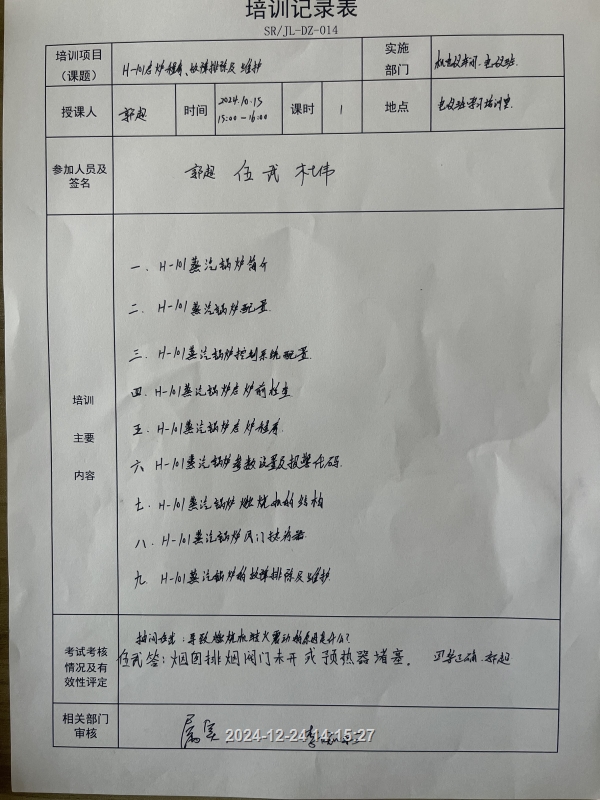 培训记录表
SR/JL-DZ-014
培训项目（课题） H-101启炉程序、故障排除及维护 实施部门 机电仪车间、电仪班
授课人 郭超 时间 2024.10.15 15:00-16:00 课时 1 地点 电仪班学习培训室
参加人员及签名 郭超 伍武 杜伟
培训主要内容
一. H-101蒸汽锅炉简介
二. H-101蒸汽锅炉配置
三. H-101蒸汽锅炉控制系统配置
四. H-101蒸汽锅炉启炉前检查
五. H-101蒸汽锅炉启炉程序
六 H-101蒸汽锅炉参数设置及报警代码
七. H-101蒸汽锅炉燃烧机的结构
八. H-101蒸汽锅炉风门执行器
九. H-101蒸汽锅炉的故障排除及维护
考试考核情况及有效性评定
抽问伍武：导致燃烧机驻火震动的原因是什么？
伍武答：烟囱排烟阀门未开或预热器堵塞。 回答正确 郭超
相关部门审核 属实
2024-12-24 14:15:27